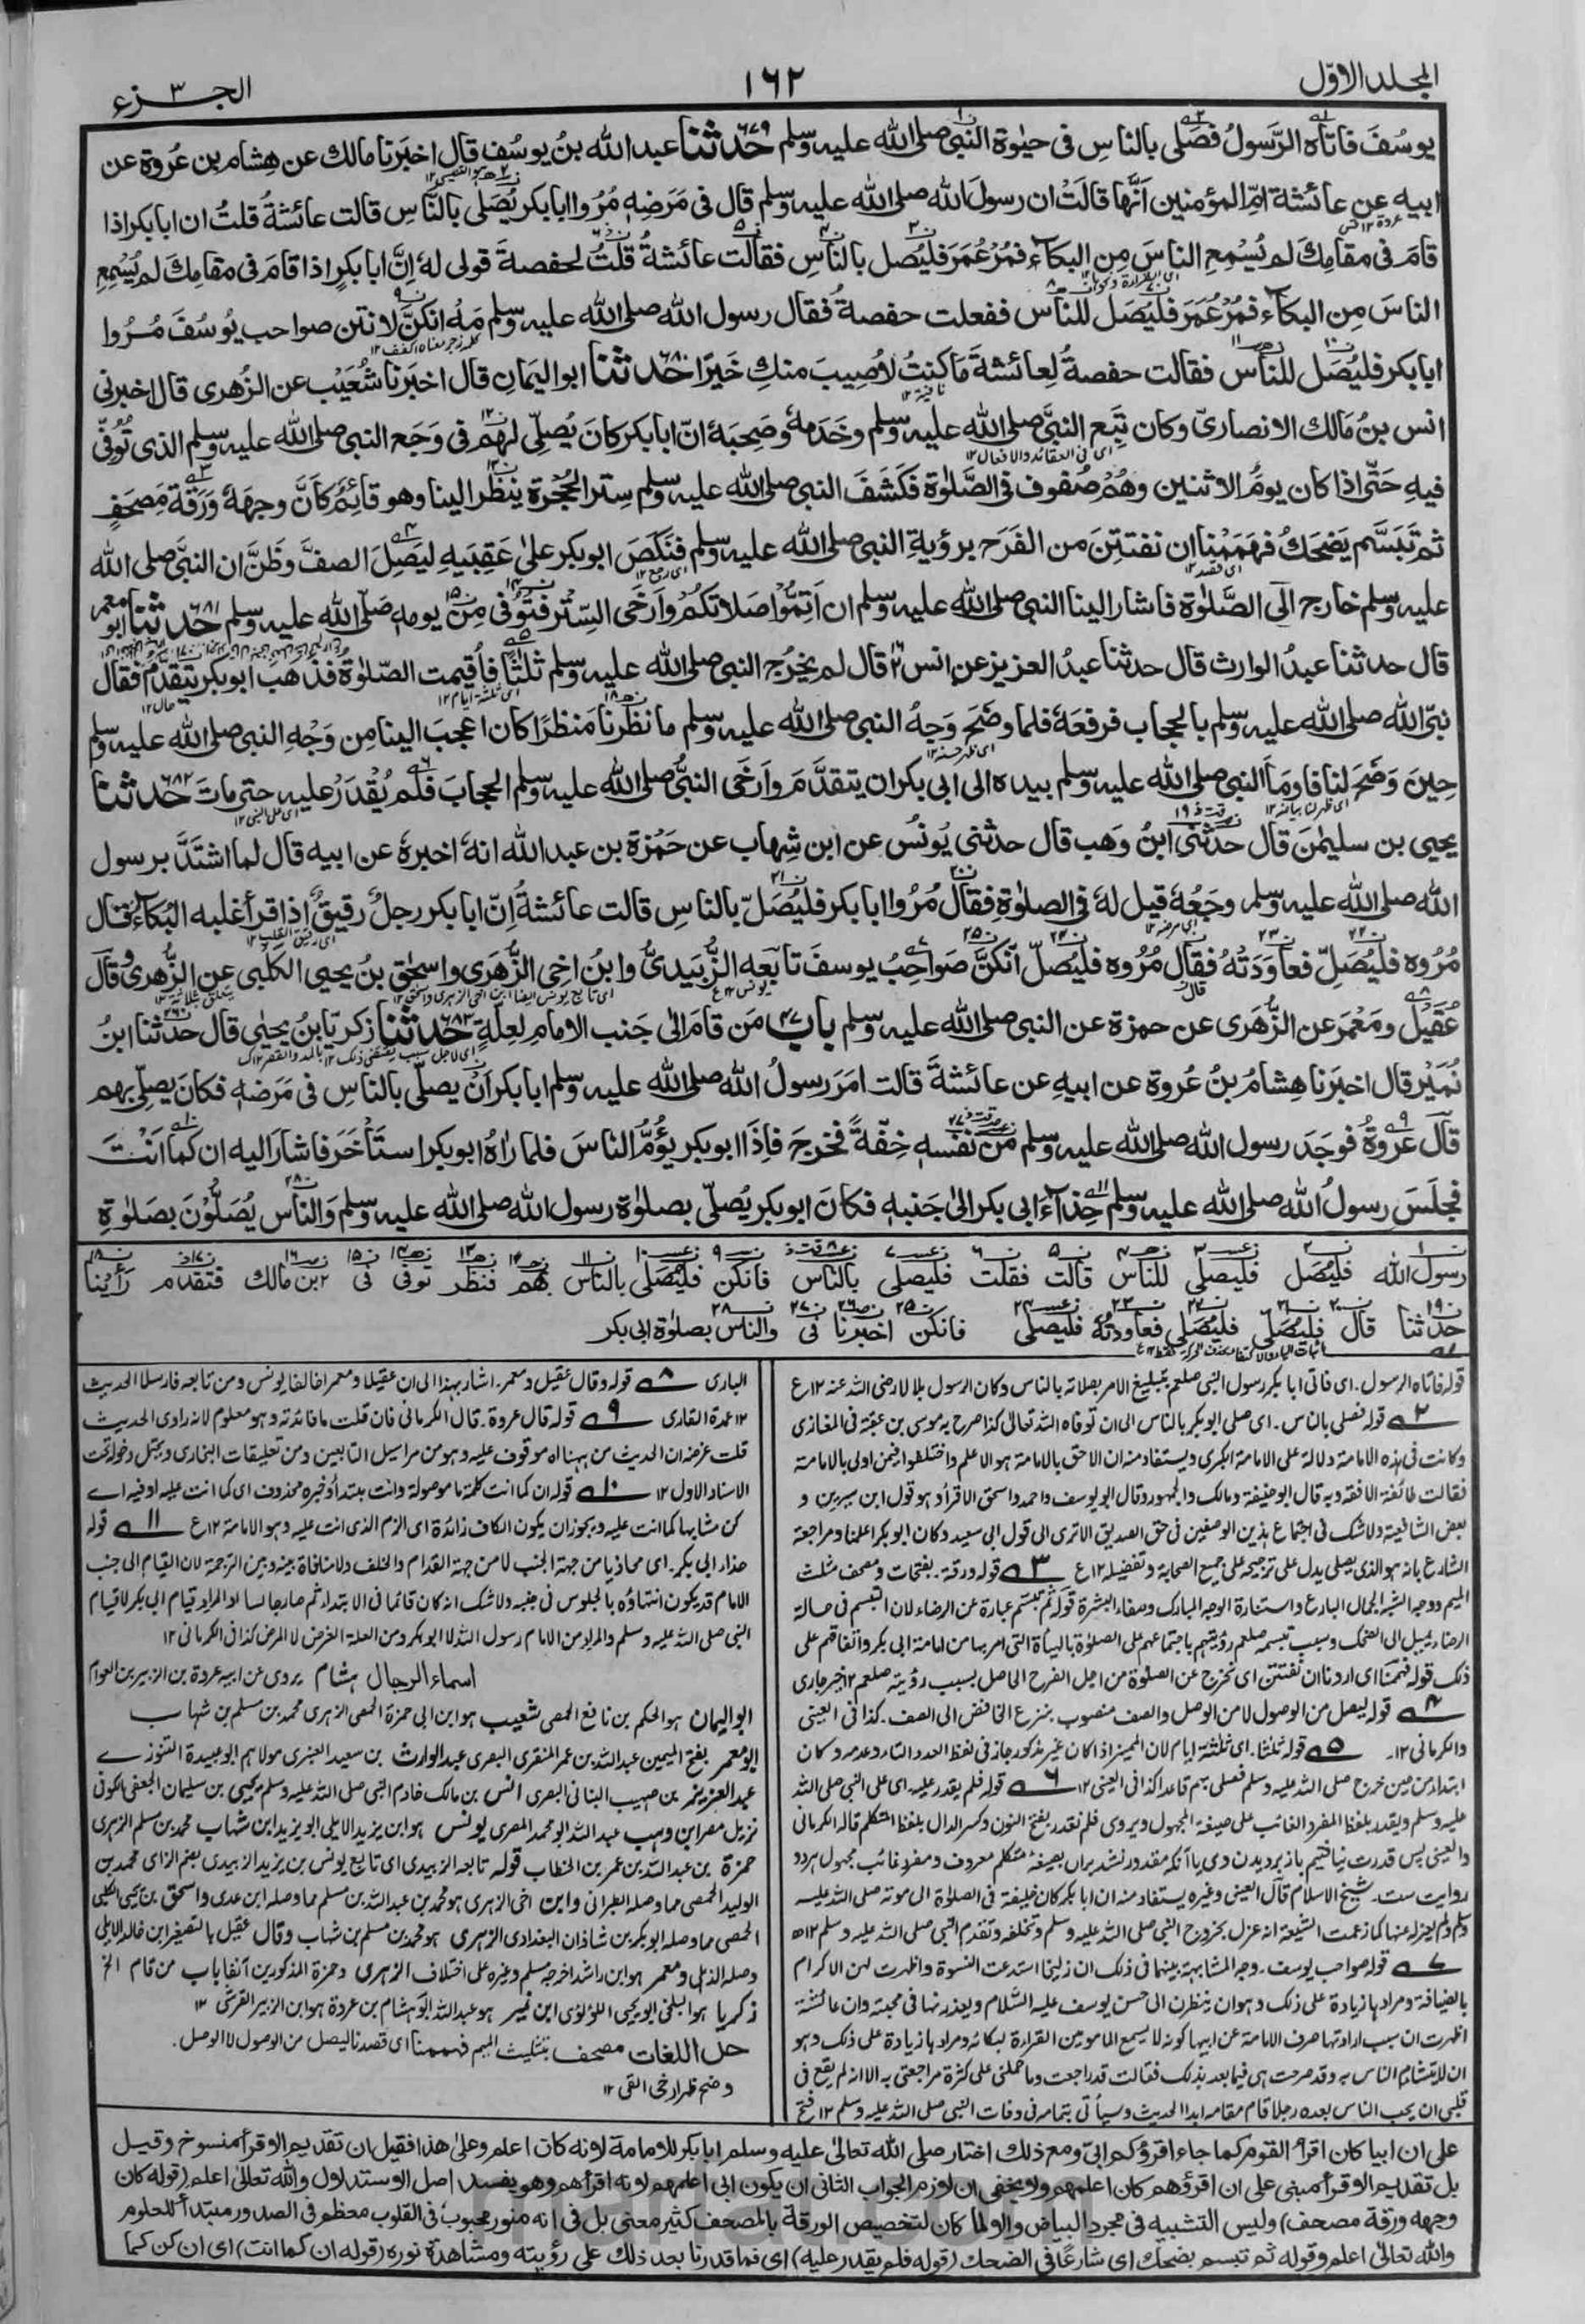 المجلد الاوّل
١٦٢
الجزء ٣
يوسُفَ فاتاه الرَّسولُ فصَلّى بالناسِ فى حيٰوة النبى صلى الله عليه وسلم حدثنا ٦٧٩ عبد الله بنُ يوسُف قال اخبَرنا مالك عن هِشام بن عُروة عن
ابيه عن عائشة امّ المؤمنين اَنَّها قالَتْ ان رسولَ الله صلى الله عليه وسلم قال فى مَرَضِهٖ مُرُوا ابابكر يُصَلى بالنَّاسِ قالت عائشةُ قلتُ ان ابابكر اذا
قامَ فى مقامِكَ لم يُسْمِعِ الناسَ مِن البكاء فمُرْ عُمَرَ فليُصل بالناسِ فقالت عائشةُ قلتُ لحفصةَ قولى لهٗ اِنَّ ابابكرٍ اذا قامَ فى مقامِكَ لم يُسْمِعِ
الناسَ مِن البكاء فمُرْ عُمَرَ فليُصَل للناس ففعلت حفصةُ فقال رسول الله صلى الله عليه وسلم مَهْ انكنَّ لانتن صواحب يُوسُفَ مُرُوا
ابابكر فليُصَل للناس فقالت حفصةُ لِعائشةَ ما كنتُ لاُصِيبَ منكِ خَيرًا حدثنا ٦٨٠ ابو اليَمانِ قال اخبَرنا شُعَيْب عن الزُهرى قال اخبرنى
انس بنُ مَالك الانصارىّ وكان تَبِعَ النبىَّ صلى الله عليه وسلم وخَدَمهٗ وصَحِبَهٗ انّ ابابكر كانَ يُصلِّى لهم فى وَجَعِ النبى صلى الله عليه وسلم الذى تُوُفِّىَ
فيهِ حَتّٰى اذا كان يومُ الاثنين وهُمْ صُفوف فى الصَّلٰوة فكَشَفَ النبى صلى الله عليه وسلم سِترَ الحُجْرة ينظُر الينا وهو قائِمٌ كاَنَّ وجهَهٗ وَرَقَة مُصحَفٍ
ثم تبَسَّم يَضحَكُ فهَمَمْنا ان نفتتِنَ من الفَرَح برؤيةِ النبى صلى الله عليه وسلم فنَكَصَ ابوبكر علىٰ عَقِبَيهِ لِيَصِلَ الصفَّ وظَنَّ ان النبىَّ صلى الله
عليه وسلم خارج الَى الصَّلٰوة فاشار الينا النبى صلى الله عليه وسلم ان اَتِمُّوا صَلاتكم واَرخَى السِّتر فتُوُفِّىَ مِنْ يومهٖ صلى الله عليه وسلم حدثنا ٦٨١ ابو معمر
قال حدثنا عبدُ الوارث قال حدثنا عبدُ العزيز عن انس قال لم يخرُج النبى صلى الله عليه وسلم ثلٰثًا فاُقيمت الصّلٰوة فذهَب ابوبكر يتقدَّم فقال
نبىّ الله صلى الله عليه وسلم بالحجاب فرفعَهٗ فلما وضَحَ وَجهُ النبى صلى الله عليه وسلم ما نظَرنا مَنظرًا كان اعجبَ الينا مِن وَجْهِ النبى صلى الله عليه وسلم
حِينَ وَضَحَ لنا فاومَأ النبى صلى الله عليه وسلم بيده الى ابى بكر ان يتقدَّمَ واَرخَى النبىُّ صلى الله عليه وسلم الحِجابَ فلَم يُقْدَرْ عليهِ حتى ماتَ حدثنا ٦٨٢
يحيى بن سليمٰنَ قال حدثنى ابنُ وَهب قال حدثنى يُونُس عن ابن شِهاب عن حَمْزة بن عبد الله انهٗ اخبرهٗ عن ابيه قال لما اشتَدَّ برسول
الله صلى الله عليه وسلم وجَعُهٗ قيل لهٗ فى الصلٰوةِ فقال مُرُوا ابابكر فليُصَلِّ بالناسِ قالت عائشةُ اِنّ ابابكر رجلٌ رقيقٌ اذا قرأ غلبه البُكاء قال
مُرُوه فليُصَلِّ فعاوَدَتهُ فقال مُرُوه فليُصلِّ انَّكنَّ صَواحِبُ يوسفَ تابعه الزُّبيدىُّ وابنُ اخِى الزُّهرى واسحٰق بنُ يحيى الكَلبى عنِ الزُّهرى وقال
عُقَيْل ومَعْمَر عن الزُّهرى عن حمزة عن النبى صلى الله عليه وسلم باب ٤٧ مَن قامَ الىٰ جَنب الامامِ لعِلَّةٍ حدثنا ٦٨٣ زكريّا بنُ يحيىٰ قال حدثنا ابنُ
نُمَيْر قال اخبرنا هِشامُ بنُ عُروة عن ابيهِ عن عائشةَ قالت امَرَ رسولُ الله صلى الله عليه وسلم ابابكر اَنْ يصلّى بالناسِ فى مَرَضهٖ فكانَ يصلّى بهم
قال عُروةُ فوجَدَ رسول الله صلى الله عليه وسلم مِن نفسهٖ خِفّةً فخرجَ فاِذا ابوبكر يؤمُّ الناسَ فلما رَاٰهُ ابوبكر استأخَرَ فاشارَ اليه ان كما اَنْتَ
فجلَسَ رسولُ الله صلى الله عليه وسلم حِذاءَ ابى بكر الىٰ جَنبِهٖ فكانَ ابوبكر يُصلّى بصلٰوة رسول الله صلى الله عليه وسلم والناس يُصَلُّوْنَ بصَلٰوةِ
رسول الله فليُصَل فليصلى للناس قالت فقلت فليصلى بالناس فانكن فليُصلى بالناس بهم فنظر توفى فى بن مالك فتقدم رأينا
حدثنا قال فليُصلى فليُصلى فعاودته فليصلى فانكن اخبرنا فى والناس بصلٰوة ابى بكر
قوله فاتاه الرسول. اى فاتى ابابكر رسول النبى صلعم بتبليغ الامر بصلاته بالناس وكان الرسول بلالا رضى الله عنه ١٢ ع
٢ قوله فصلى بالناس. اى صلى ابوبكر بالناس الى ان توفاه الله تعالىٰ كذا صرح به موسى بن عقبة فى المغازى
وكانت فى هذه الامامة دلالة على الامامة الكبرى ويستفاد منه ان الاحق بالامامة هو الاعلم واختلفوا فيمن اولى بالامامة
فقالت طائفة الافقه وبه قال ابوحنيفة ومالك والجمهور وقال ابويوسف واحمد واسحق الاقرأ وهو قول ابن سيرين و
بعض الشافعية ولا شك فى اجتماع هذين الوصفين فى حق الصديق الاترى الى قول ابى سعيد وكان ابوبكر اعلمنا ومراجعة
الشارع بانه هو الذى يصلى يدل على ترجيحه على جميع الصحابة وتفضيله ١٢ ع ٣ قوله ورقة. بفتحات ومصحف مثلث
الميم ووجه الشبه الجمال البارع واستنارة الوجه المبارك وصفاء البشرة قوله ثم تبسم عبارة عن الرضاء لان التبسم فى حالة
الرضاء يميل الى الضحك وسبب تبسمه صلعم رؤيتهم باجتماعهم على الصلوٰة بالهيأة التى امر بها من امامة ابى بكر واتفاقهم على
ذلك قوله فهممنا اى اردنا ان نفتتن اى نخرج عن الصلوٰة من اجل الفرح الحاصل بسبب رؤيته صلعم ١٢ خير جارى
٤ قوله ليصل من الوصول لا من الوصل والصف منصوب بنزع الخافض الى الصف. كذا فى العينى
والكرمانى ١٢. ٥ قوله ثلثا. اى ثلثة ايام لان المميز اذا كان غير مذكور جاز فى لفظ العدد التاء وعدمه وكان
ابتداء من حين خرج صلى الله عليه وسلم فصلى بهم قاعدا كذا فى العينى ١٢ ٦ قوله فلم يقدر عليه اى على النبى صلى الله
عليه وسلم ويقدر بلفظ المفرد الغائب على صيغة المجهول ويروى فلم نقدر بفتح النون وكسر الدال بلفظ المتكلم قاله الكرمانى
والعينى پس قدرت نيافتيم باز بر ديدن وى يا آنكه مقدور نشد بران بصيغه متكلم معروف ومفرد غائب مجهول هردو
روايت ست. شيخ الاسلام قال العينى وغيره يستفاد منه ان ابابكر كان خليفة فى الصلوٰة الى موته صلى الله عليه
وسلم ولم يعزله عنها كما زعمت الشيعة انه عزل بخروج النبى صلى الله عليه وسلم وتخلفه وتقدم النبى صلى الله عليه وسلم ١٢
٧ قوله صواحب يوسف. وجه المشابهة بينهما فى ذلك ان زليخا استدعت النسوة واظهرت لهن الاكرام
بالضيافة ومرادها زيادة على ذلك وهو ان ينظرن الى حسن يوسف عليه السلام ويعذرنها فى محبته وان عائشة
اظهرت ان سبب ارادتها صرف الامامة عن ابيها كونه لا يسمع المامومين القراءة لبكائه ومرادها زيادة على ذلك وهو
ان لا يتشاءم الناس به وقد صرحت هى فيما بعد بذلك فقالت قد راجعته وما حملنى على كثرة مراجعتى به الا انه لم يقع فى
قلبى ان يحب الناس بعده رجلا قام مقامه ابدا الحديث وسيأتى بتمامه فى وفات النبى صلى الله عليه وسلم ١٢ فتح
البارى ٨ قوله وقال عقيل ومعمر. اشار بهذا الى ان عقيلا ومعمرا خالفا يونس ومن تابعه فارسلا الحديث
١٢ عمدة القارى ٩ قوله قال عروة. قال الكرمانى فان قلت ما فائدته وهو معلوم لانه راوى الحديث
قلت غرضه ان الحديث من ههنا له موقوف عليه وهو من مراسيل التابعين ومن تعليقات البخارى ويحتمل دخوله تحت
الاسناد الاول ١٢ ١٠ قوله ان كما انت كلمة ما موصولة وانت مبتدأ وخبره محذوف اى كما انت عليه او فيه اے
كن مشابها كما انت عليه ويجوز ان يكون الكاف زائدة اى الزم الذى انت عليه وهو الامامة ١٢ ع ١١ قوله
حذاء ابى بكر. اى محاذيا من جهة الجنب لا من جهة القدام والخلف ولا منافاة بينه وبين الترجمة لان القيام الى جنب
الامام قد يكون انتهاؤه بالجلوس فى جنبه ولا شك انه كان قائما فى الابتداء ثم صار جالسا او المراد قيام ابى بكر لا قيام
النبى صلى الله عليه وسلم والمراد من الامام رسول الله لا ابوبكر ومن العلة الغرض لا المرض كذا فى الكرمانى ١٢
اسماء الرجال هشام يروى عن ابيه عروة بن الزبير بن العوام
ابو اليمان هو الحكم بن نافع الحمصى شعيب هو ابن ابى حمزة الحمصى الزهرى محمد بن مسلم بن شهاب
ابومعمر بفتح الميمين عبد الله بن عمر المنقرى البصرى عبد الوارث بن سعيد العنبرى مولاهم ابوعبيدة التنورے
عبد العزيز بن صهيب البنانى البصرى انس بن مالك خادم النبى صلى الله عليه وسلم يحيى بن سليمان الجعفى الكوفى
نزيل مصر ابن وهب عبد الله ابومحمد المصرى يونس هو ابن يزيد الايلى ابويزيد ابن شهاب محمد بن مسلم الزهرى
حمزة بن عبد الله بن عمر بن الخطاب قوله تابعه الزبيدى اى تابع يونس بن يزيد الزبيدى بضم الزاى محمد بن
الوليد الحمصى مما وصله الطبرانى وابن اخى الزهرى هو محمد بن عبد الله بن مسلم مما وصله ابن عدى واسحق بن يحيى الكلبى
الحمصى مما وصله ابوبكر بن شاذان البغدادى الزهرى هو محمد بن مسلم بن شهاب وقال عقيل بالتصغير ابن خالد الايلى
وصله الذهلى ومعمر هو ابن راشد اخرجه مسلم وغيره على اختلاف الزهرى وحمزة المذكورين آنفا باب من قام الخ
زكريا هو البلخى ابويحيى اللؤلؤى ابن نمير هو عبد الله ابو هشام بن عروة هو ابن الزبير القرشى ١٢
حل اللغات مصحف بتثليث الميم فهممنا اى قصدنا ليصل من الوصول لا الوصل.
وضح ظهر ارخى القى ١٢
على ان ابيا كان اقرأ القوم كما جاء اقرؤكم ابىّ ومع ذلك اختار صلى الله تعالىٰ عليه وسلم ابابكر للامامة لانه كان اعلم وعلىٰ هذا فقيل ان تقديم الاقرأ منسوخ وقيل
بل تقديم الاقرأ مبنى على ان اقرؤهم كان اعلمهم ولا يخفى ان لازم الجواب الثانى ان يكون ابى اعلمهم لانه اقرأهم وهو يفسد اصل الاستدلال والله تعالىٰ اعلم (قوله كان
وجهه ورقة مصحف) وليس التشبيه فى مجرد البياض والا لما كان لتخصيص الورقة بالمصحف كثير معنى بل فى انه منور محبوب فى القلوب معظم فى الصدور مبتدأ للعلوم
والله تعالىٰ اعلم وقوله ثم تبسم يضحك اى شارعًا فى الضحك (قوله فلم يقدر عليه) اى فما قدرنا بعد ذلك على رؤيته ومشاهدة نوره (قوله ان كما انت) اى ان كن كما